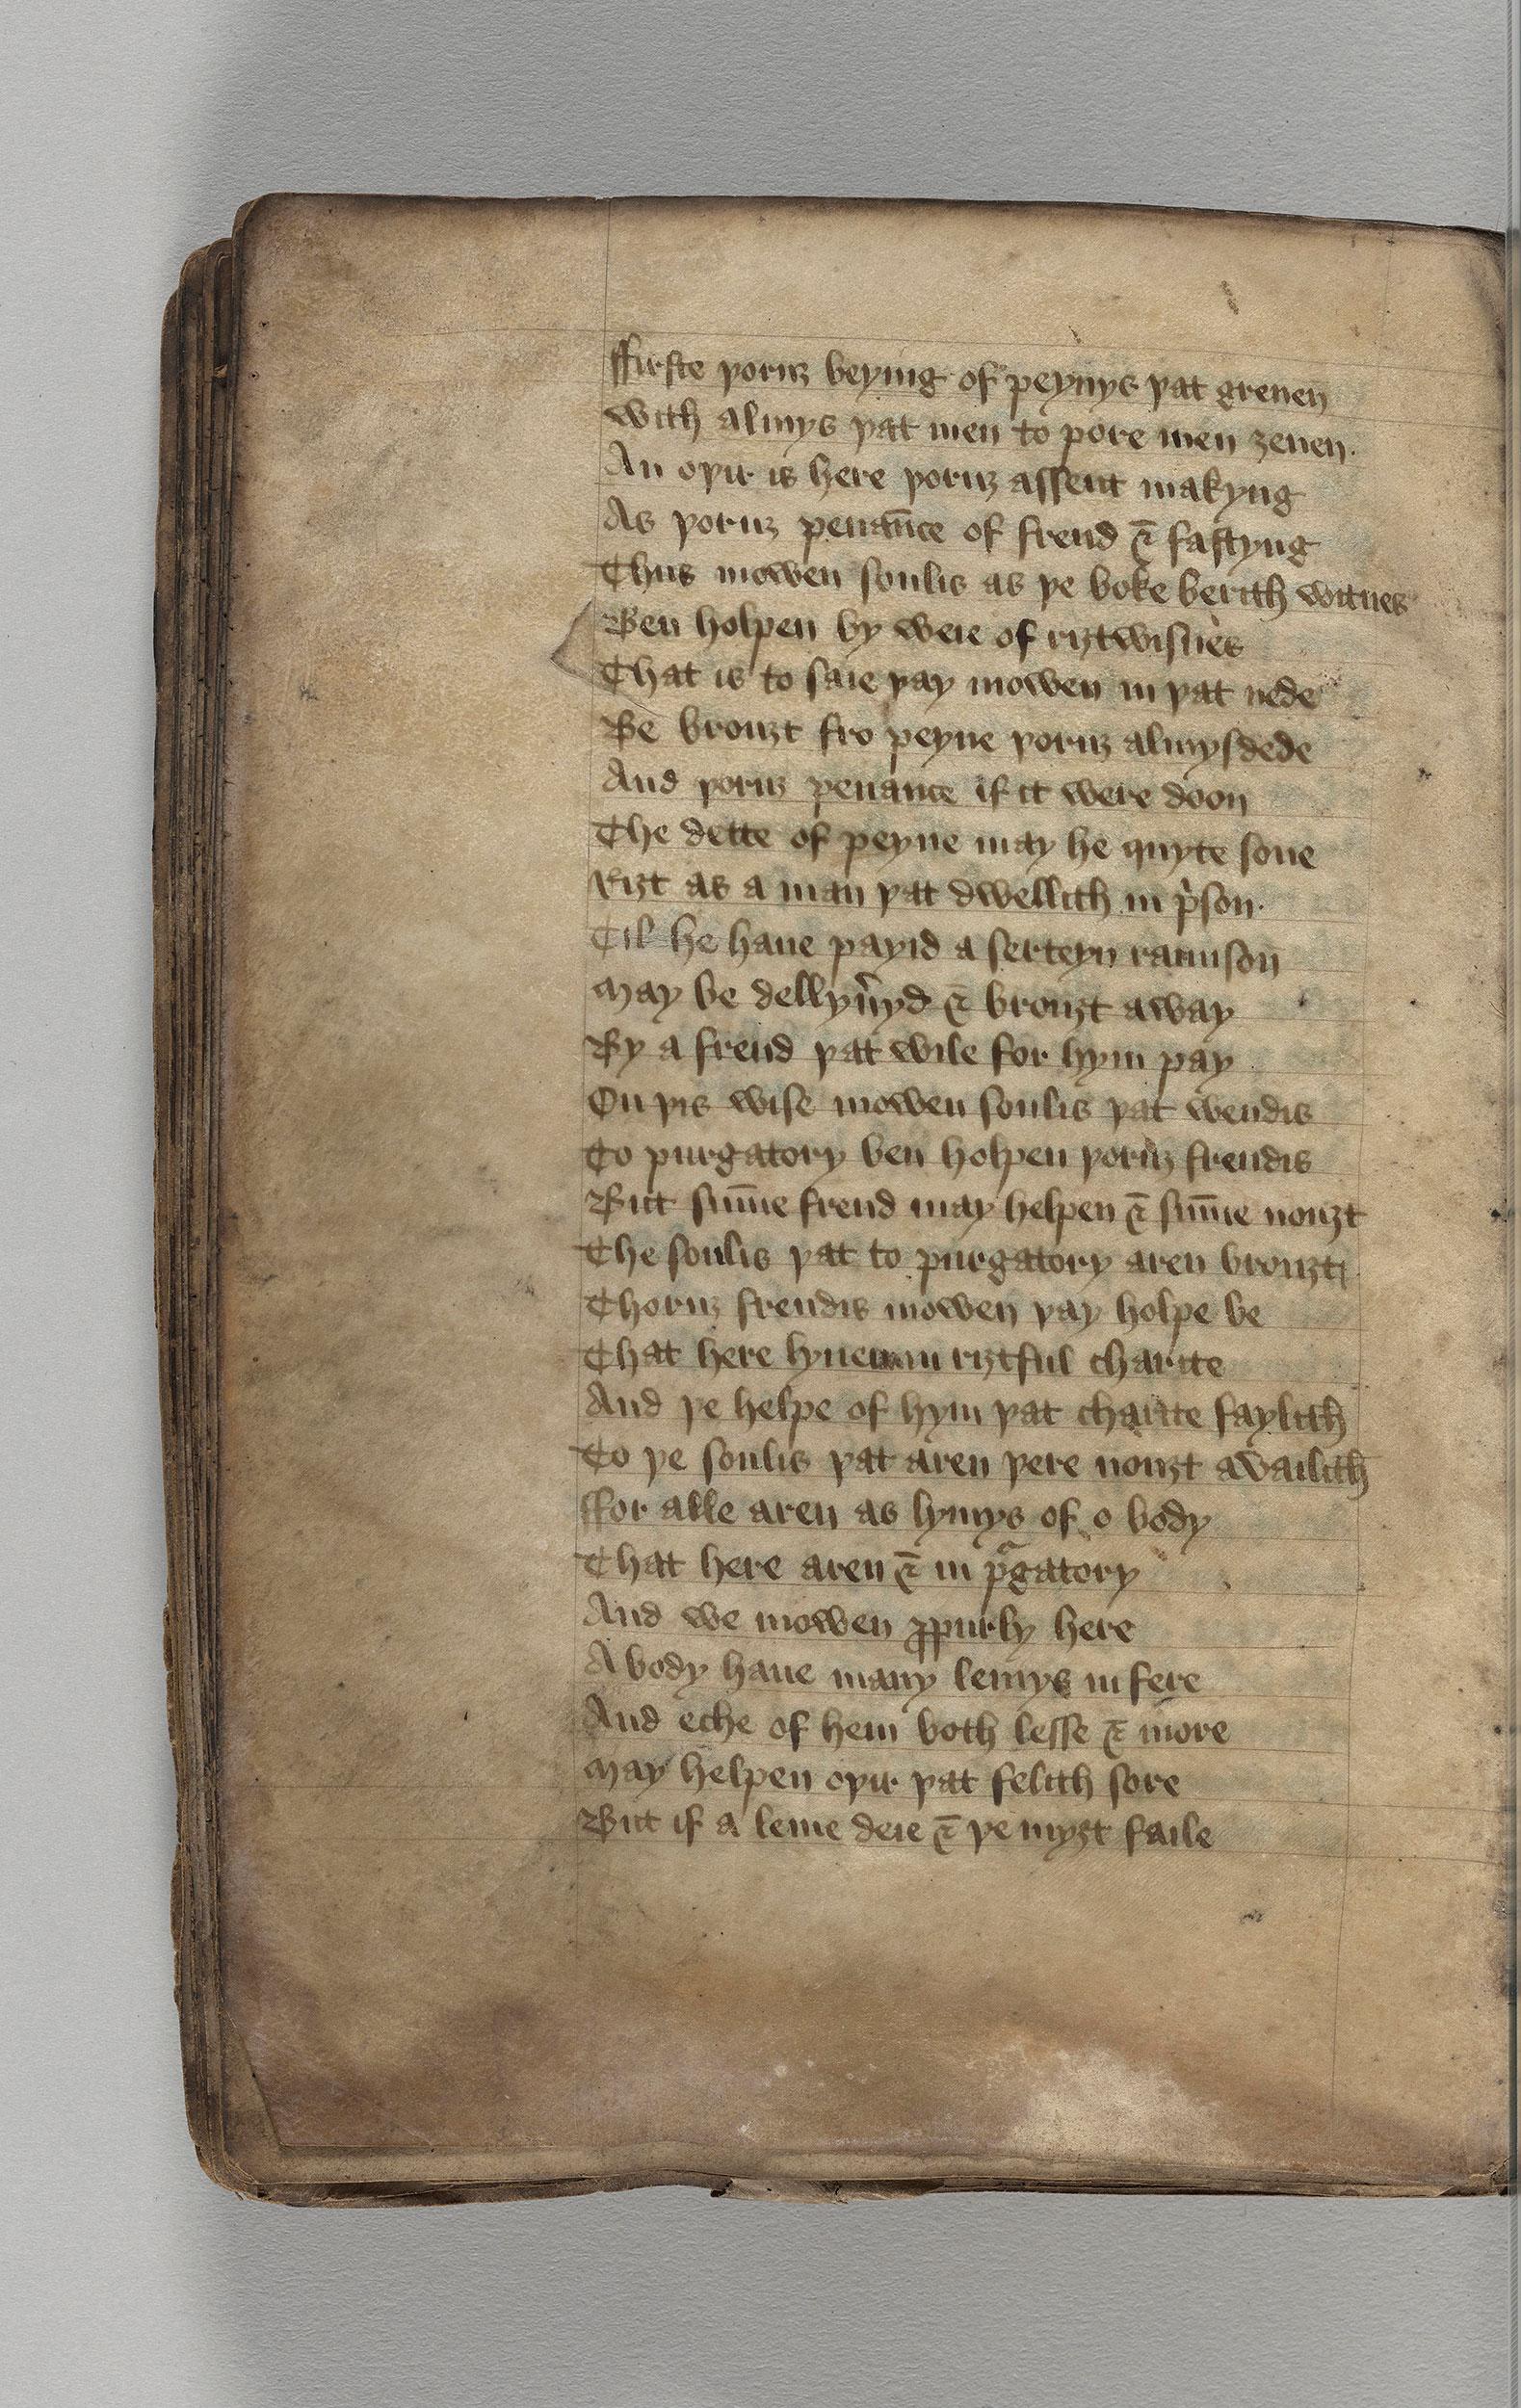 ffirste þoruȝ beying of peynys þat greuen
With almys þat men to pore men ȝeuen.
An oþir is here þoruȝ assent makyng
As þoruȝ penan̄ce of frend & fastyng
Thus mowen soulis as þe boke berith witnes
Ben holpen by weie of riȝtwisnes
That is to saie þay mowen in þat nede
Be brouȝt fro peyne þoruȝ almysdede
And þoruȝ penance if it were doon
The dette of peyne may he quyte sone
Riȝt as a man þat dwellith in pͥson.
Til he haue payid a serteyn raunson
May be dellyu̾yd & brouȝt away
By a frend þat wile for hym pay
On þis wise mowen soulis þat wendis
To purgatory ben holpen þoruȝ frendis
But sum̄e frend may helpen & sum̄e nouȝt
The soulis þat to purgatory aren brouȝt
Thoruȝ frendis mowen þay holpe be
That here lyuen in riȝtful charite
And þe helpe of hym þat charite faylith
To þe soulis þat aren þere nouȝt awailith
ffor alle aren as lymys of o body
That here aren & in pᵃgatory
And we mowen ꝓpurly here
A body haue many lemys in fere
And eche of hem both lesse & more
May helpen oþir þat felith sore
But if a leme deie & þe myȝt faile